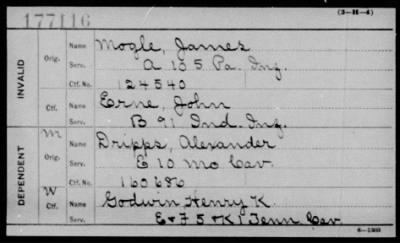 177116
(3-H-4)
INVALID
Orig.
Name Mogle, James
Serv. A 105 Pa. Inf.
Ctf. No. 124540
Ctf.
Name Erne, John
Serv. B 91 Ind. Inf.
DEPENDENT
M
Orig.
Name Dripps, Alexander
Serv. E 10 Mo Cav.
Ctf. No. 160686
W
Ctf.
Name Godwin Henry K.
Serv. E & F 5 & K 1 Tenn Cav.